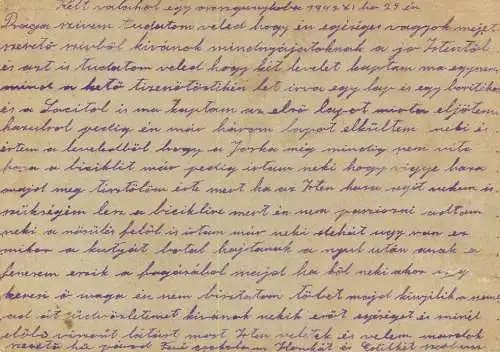 Kelt valahol egy oroszgunyhoba 1942 XI ho 29 én
Drága szivem tudatom veled hogy én egéséges vagyok mejet
szerető szivből kivánok mindnyájatoknak a jó Istentől
és azt is tudatom veled hogy két levelet kaptam ma egyszer
mind a kető tizenötödikén let irva egy lap és egy boriték
és a Lacitol is ma kaptam az első lapot miota eljötem
hazulrol pedig én már három lapot elkültem neki és
értem a leveledből hogy a Jóska még mindig nem vite
haza a biciklit már pedig irtam neki hogy vigye haza
majd meg tisztölöm érte mert ha az Isten haza segit nekem is
szükségém lesz a biciklire mert én nem passziozni adtam
neki a nősülés felől is irtam már neki eleháit ugy van ez
mikor a kutyát botal hajtanak a nyul után anak a
fenerem eszik a fogájából majd ha köl neki akor
keresi ő maga én nem biztatom többet majd kinyilik a szeme
üdvözletmet kivánok nekik erőt egéséget és minél
előbb viszont látást most Isten veletek és velem maradok
szerető hü párod Jenő csokolom Ilonkát és Editkét